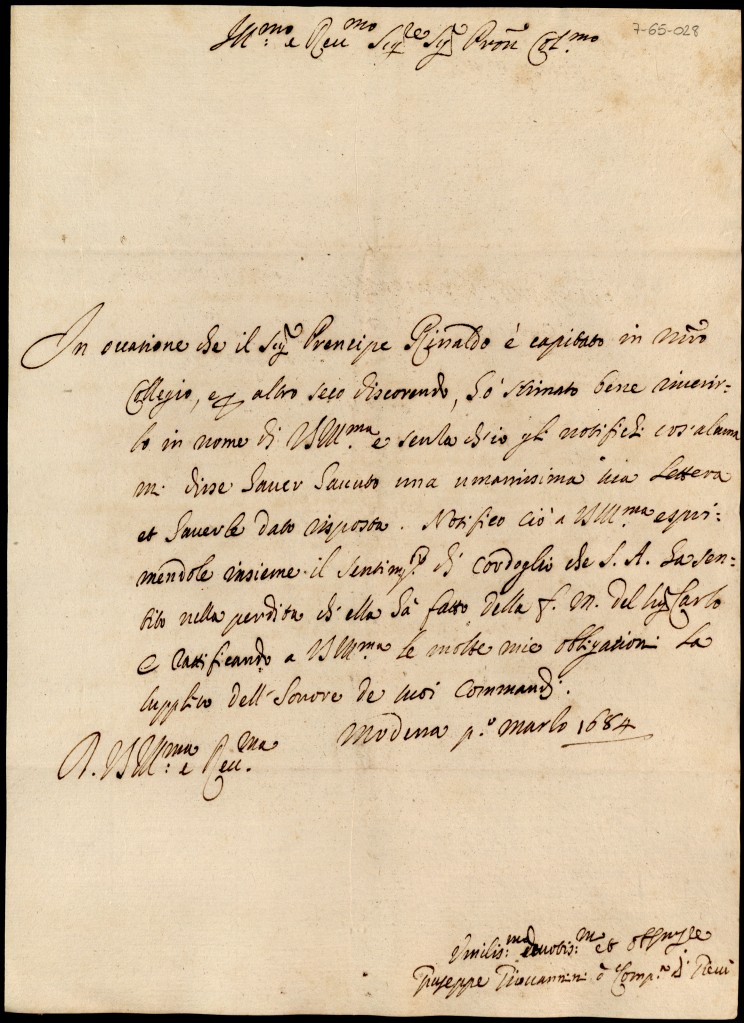 7-65-028
Ill.mo e Reu.mo Sig.re Sig.r Pron Col.mo
In occasione che il Sig.r Prencipe Rinaldo è capitato in nro
Collegio, e altro seco discorendo, hò stimato bene riuerir=
lo in nome di VS Ill.ma e senza ch'io gli notifichi cos'alcuna
m. disse hauer hauuto una umanissima sua lettera
et hauerle dato risposta. Notifico ciò a VS Ill.ma espri=
mendole insieme il sentim.to di cordoglio che S. A. ha sen=
tito nella perdita ch'ella hà fatto della f. m. del Sig.r Carlo
e rattificando a VS Ill.ma le molte mie obligationi la
supplico dell'honore de suoi commandi.
Modena p.o Marzo 1684
D. VS Ill.ma e Reu.ma
Vmilis.mo deuotis.mo et
Giuseppe Giouannini Comp.a di